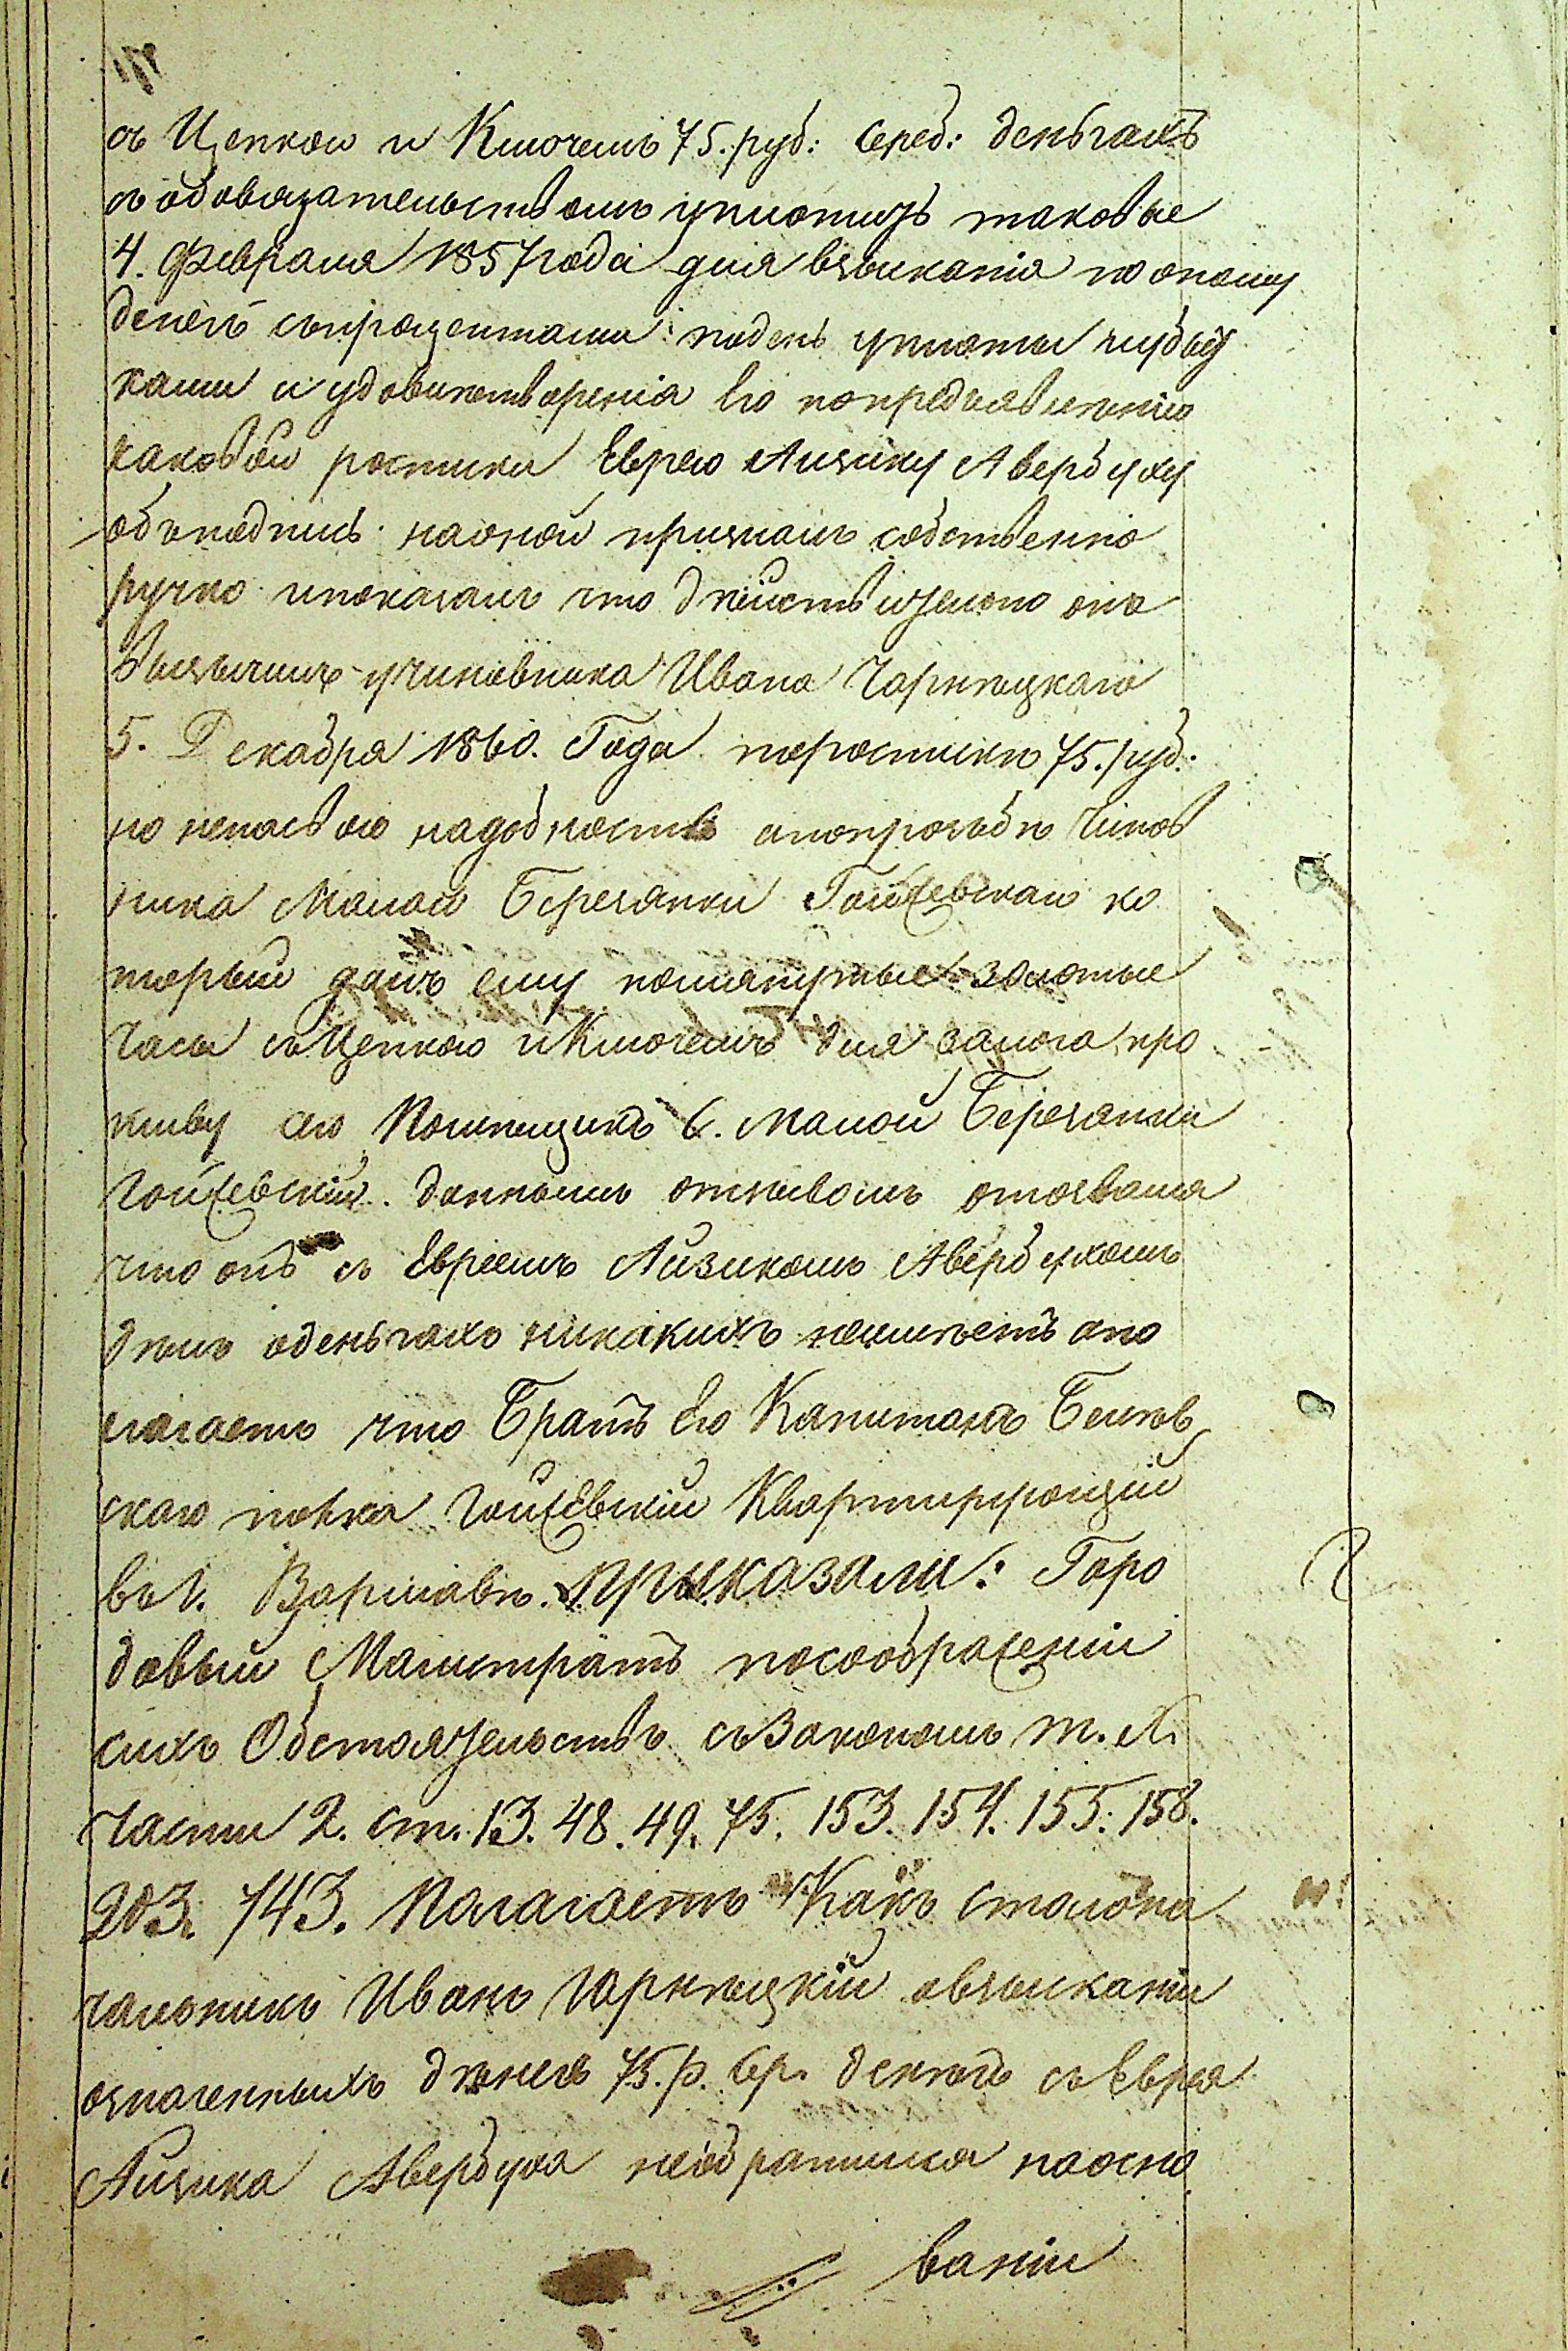 съ Цепкои и Ключемъ 75. руб: Сереб: деньгахъ
съ обовязательствомъ уплотить таковые
4. Февраля 1857 года для взысканія по оному
денегъ съпроцентами подень уплоты
и удовлетворенія Его попредъявленію
каковой роспики Еврею Айзику Авербуху
объ подпись наоной призналъ собственно
ручно ипоказалъ что дѣйствительно онъ
взычилъ учиновника Ивана Чарнецкаго
5. Декабря 1860. Года поросписки 75. руб:
но непосвою надобность апопрозьбѣ Чинов
ника Малой Березянки Гойжевскаго ко
торый далъ ему золотые
Часы съЦепкою иКлючемъ для залога про
тиву сего Помѣщикъ С. Малой Березянки
Гойжевскій даннымъ отзывомъ отозвался
что онъ съ Евреемъ Айзикомъ Авербухомъ
дѣлъ оденьгахъ никакихъ неимѣетъ апо
лагаетъ что Братъ Его Капитанъ Белев
скаго полка Гойжевскій Квартирующій
въ г. Варшавѣ. Приказали: Горо
довый Магистратъ посоображеніи
сихъ Обстоятельствъ съЗакономъ т. X.
части 2. ст. 13. 48. 49. 75. 153. 154. 155. 158.
203. 743. Полагаетъ Какъ столона
чальникъ Иванъ Чарнецкій овзысканіи
означенныхъ 75. р. Сер. денегъ съ Еврея
Айзика Авербуха необратился наосно
ваніи